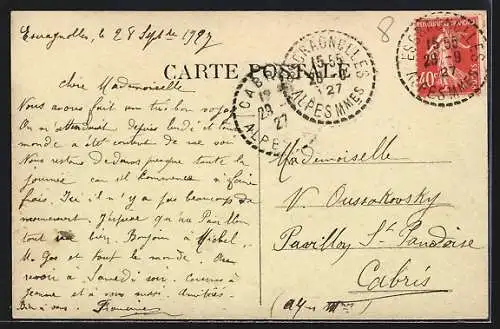 Escragnolles, le 28 Sept. 1927
8
RÉPUBLIQUE FRANÇAISE
40c
ESCRAGNOLLES
15 55
29 - 9
27
ALPES MMES
CARTE POSTALE
ESCRAGNOLLES
15 55
29 - 9
27
ALPES MMES
CAB
29
27
ALPE
chère Mademoiselle
Nous avons fait un très bon voyage
On m'attendait depuis lundi et tout
monde a été content de me voir
Nous restons dedans presque toute la
journée car il commence à faire
frais. Ici il n'y a pas beaucoup de
mouvement. J'espère qu'au Pavillon
tout va bien. Bonjour à Michel
M. Gas et tout le monde. Au
revoir à Samedi soir. Caresses à
et à vous mes amitiés.
Mademoiselle
V. Oussakovsky
Pavillon St Pandoise
Cabris
(Alpes Mmes)